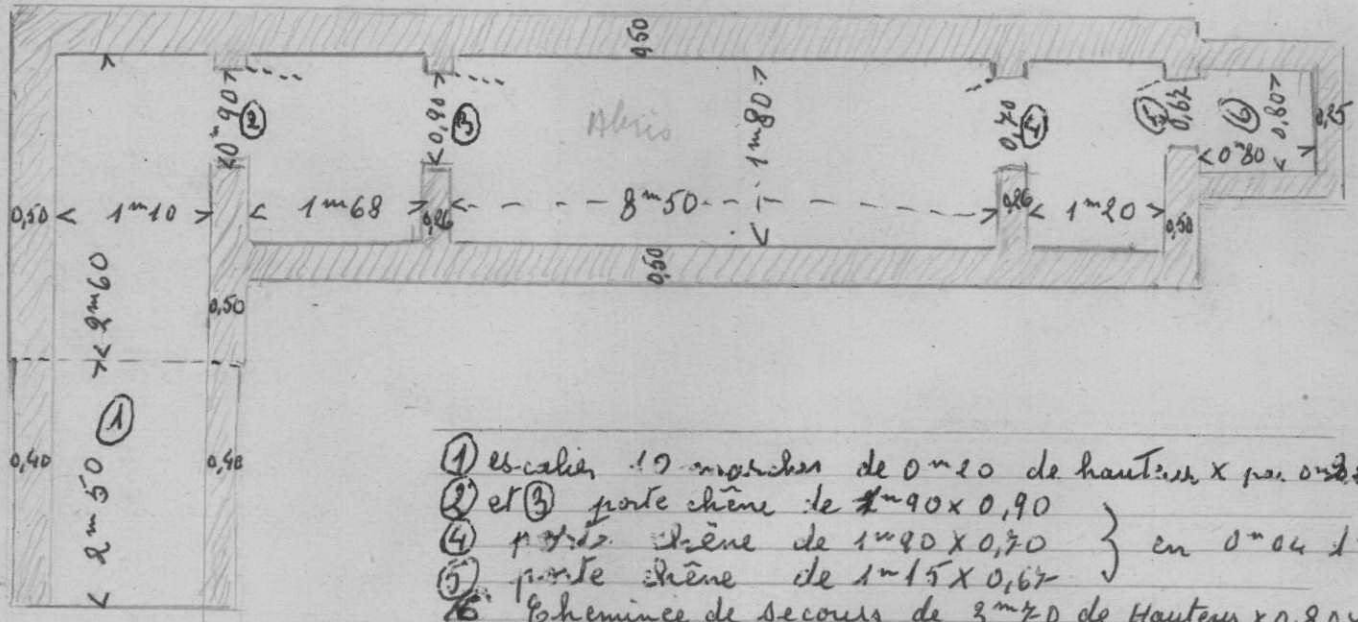 0,50
0m90
②
0,90
③
Abris
1m80
0,70
④
⑤
0,67
⑥
0,80
0,25
0,50
1m10
1m68
0,26
8m50
0,26
1m20
0,50
0m80
2m60
0,50
0,50
①
2m50
0,40
0,40
① escalier 10 marches de 0m20 de hauteur x par
② et ③ porte chêne de 1m90 x 0,90
④ porte chêne de 1m90 x 0,70
⑤ porte chêne de 1m15 x 0,67
en 0m04 d
6 Cheminée de secours de 3m70 de Hauteur x 0,80